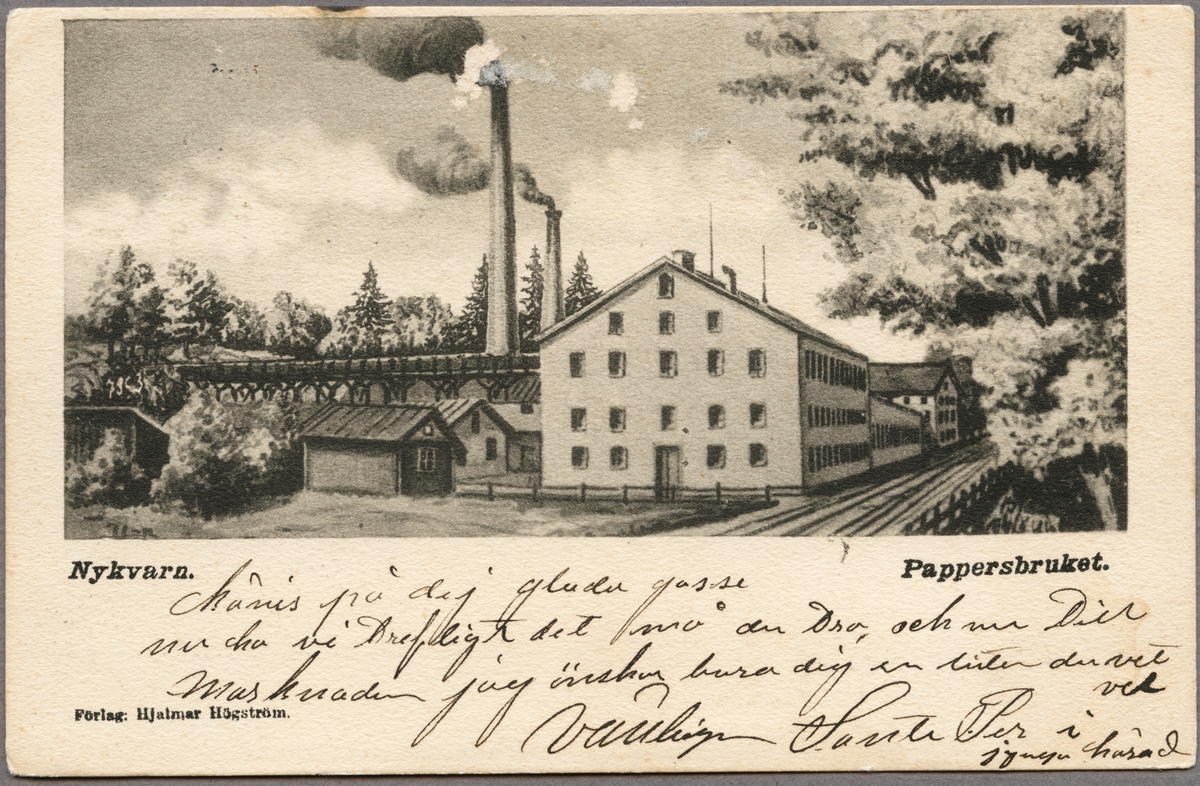 Nykvarn.
Pappersbruket.
på dig glada gosse
nu ha vi det må du tro, och nu Till
Marknaden jag önskar bara dig en liten du vet
vet
Vänligen Sante Per i
härad
Förlag: Hjalmar Högström.